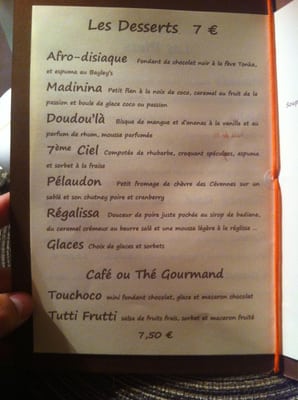 Les Desserts 7 €
Afro-disiaque Fondant de chocolat noir à la fève Tonka,
et espuma au Bayley's
Madinina Petit flan à la noix de coco, caramel au fruit de la
passion et boule de glace coco ou passion
Doudou'là Bisque de mangue et d'ananas à la vanille et au
parfum de rhum, mousse parfumée
7ème Ciel Compotée de rhubarbe, croquant spéculoos, espuma
et sorbet à la fraise
Pélaudon Petit fromage de chèvre des Cévennes sur un
sablé et son chutney poire et cranberry
Régalissa Douceur de poire juste pochée au sirop de badiane,
du caramel crémeux au beurre salé et une mousse légère à la réglisse ...
Glaces Choix de glaces et sorbets
Café ou Thé Gourmand
Touchoco mini fondant chocolat, glace et macaron chocolat
Tutti Frutti salsa de fruits frais, sorbet et macaron fruité
7,50 €